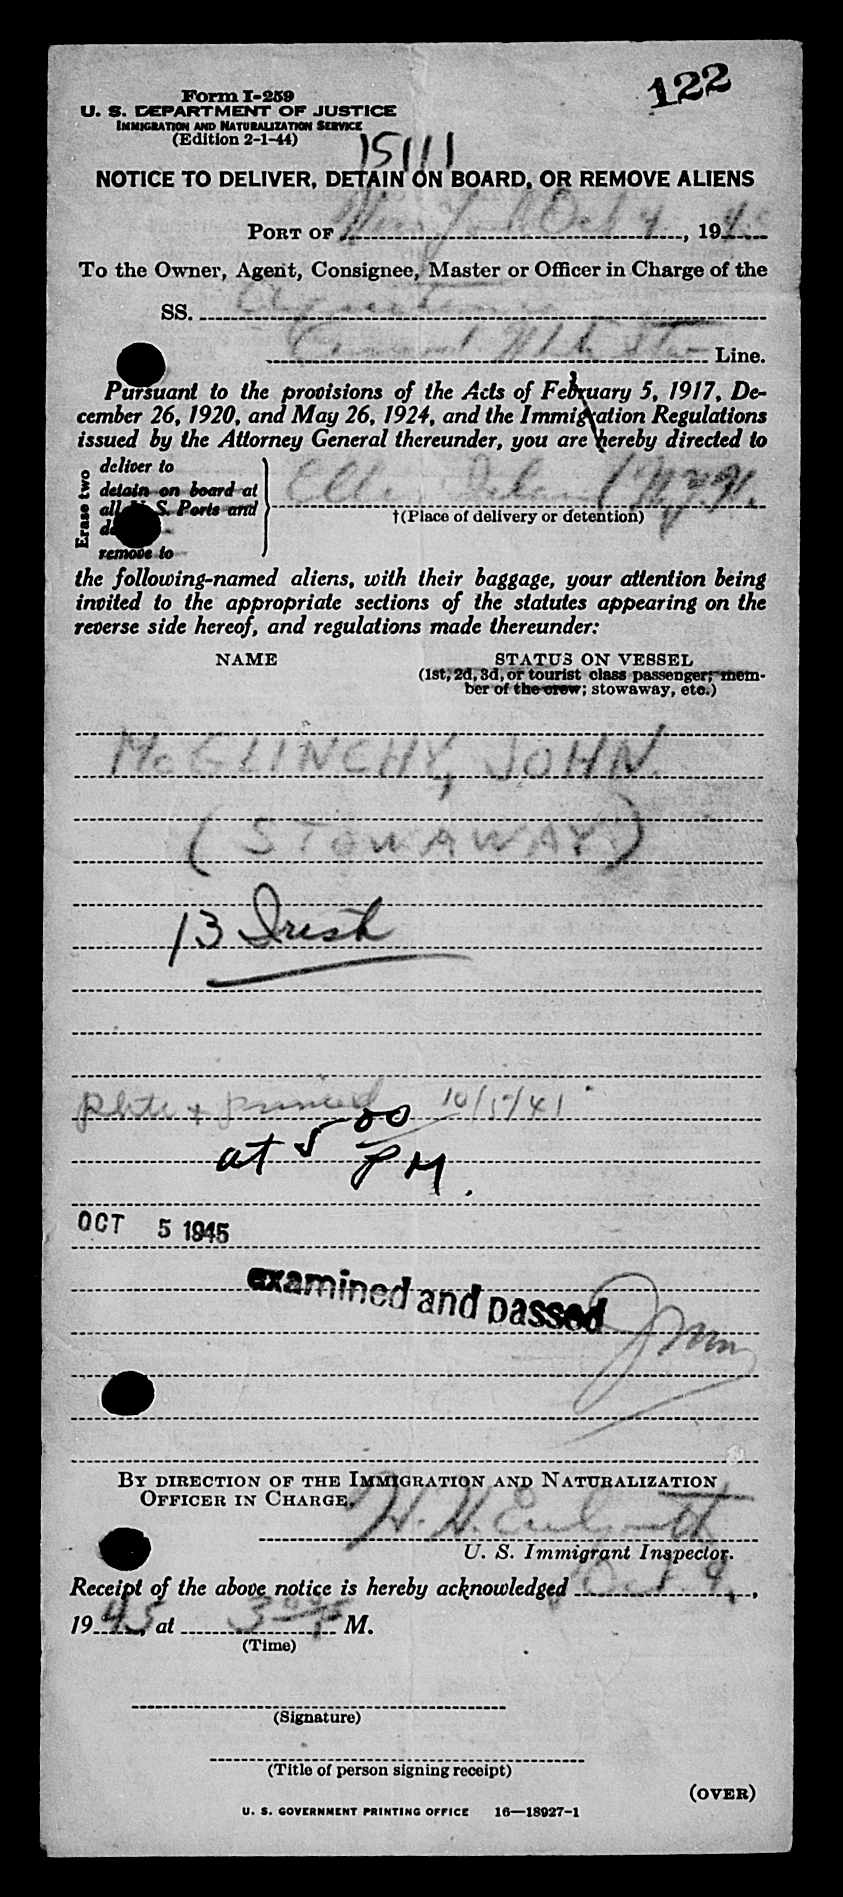 122
Form I-259
U. S. DEPARTMENT OF JUSTICE
IMMIGRATION AND NATURALIZATION SERVICE
(Edition 2-1-44)
15111
NOTICE TO DELIVER, DETAIN ON BOARD, OR REMOVE ALIENS
PORT OF New York Oct 4, 1945
To the Owner, Agent, Consignee, Master or Officer in Charge of the
SS. Aquitania
Cunard White Star Line.
Pursuant to the provisions of the Acts of February 5, 1917, De-
cember 26, 1920, and May 26, 1924, and the Immigration Regulations
issued by the Attorney General thereunder, you are hereby directed to
Erase two
deliver to
detain on board at
all U. S. Ports and
remove to
Ellis Island N.Y.H.
†(Place of delivery or detention)
the following-named aliens, with their baggage, your attention being
invited to the appropriate sections of the statutes appearing on the
reverse side hereof, and regulations made thereunder:
NAME STATUS ON VESSEL
(1st, 2d, 3d, or tourist class passenger; mem-
ber of the crew; stowaway, etc.)
McGLINCHY, JOHN.
(STOWAWAY)
13 Irish
Photo + printed 10/5/41
at 5 00 PM.
OCT 5 1945
examined and passed
BY DIRECTION OF THE IMMIGRATION AND NATURALIZATION
OFFICER IN CHARGE,
H. H.
U. S. Immigrant Inspector.
Receipt of the above notice is hereby acknowledged Oct. 4,
1945, at 3 00 P M.
(Time)
(Signature)
(Title of person signing receipt)
(OVER)
U. S. GOVERNMENT PRINTING OFFICE 16—18927-1